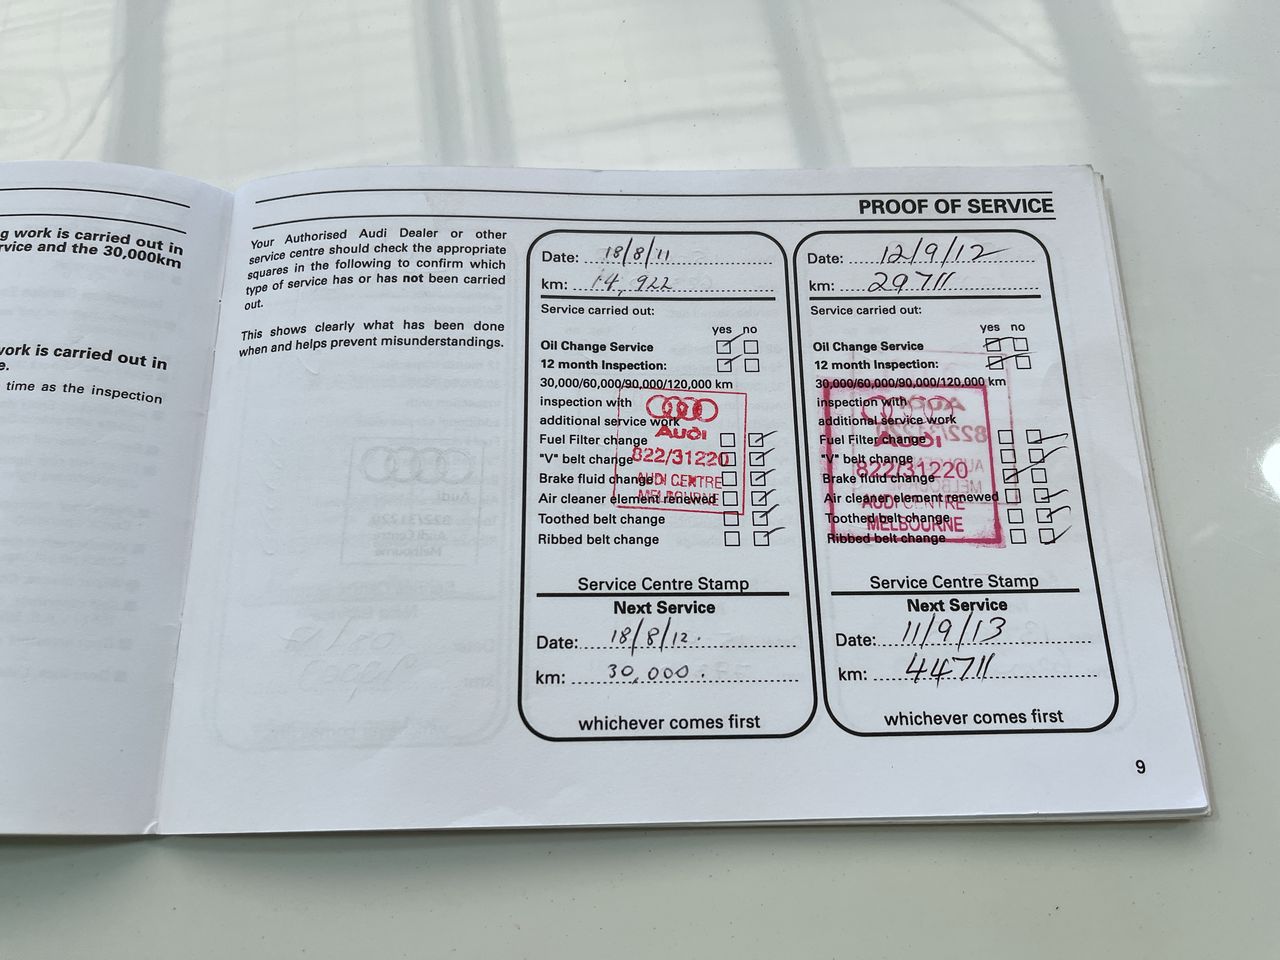 g work is carried out in
rvice and the 30,000km
work is carried out in
e.
time as the inspection
PROOF OF SERVICE
Your Authorised Audi Dealer or other
service centre should check the appropriate
squares in the following to confirm which
type of service has or has not been carried
out.
This shows clearly what has been done
when and helps prevent misunderstandings.
Date: 18/8/11
km: 14,922
Service carried out:
yes no
Oil Change Service
12 month Inspection:
30,000/60,000/90,000/120,000 km
inspection with
additional service work
Fuel Filter change
"V" belt change
Brake fluid change
Air cleaner element renewed
Toothed belt change
Ribbed belt change
Audi
822/31220
AUDI CENTRE
MELBOURNE
Service Centre Stamp
Next Service
Date: 18/8/12.
km: 30,000.
whichever comes first
Date: 12/9/12
km: 29711
Service carried out:
yes no
Oil Change Service
12 month Inspection:
30,000/60,000/90,000/120,000 km
inspection with
additional service work
Fuel Filter change
"V" belt change
Brake fluid change
Air cleaner element renewed
Toothed belt change
Ribbed belt change
Audi
822/31220
AUDI CENTRE
MELBOURNE
Service Centre Stamp
Next Service
Date: 11/9/13
km: 44711
whichever comes first
9